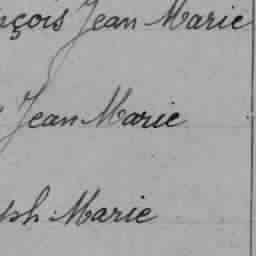 nçois Jean Marie
Jean Marie
ph Marie